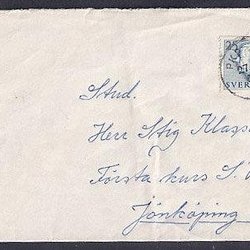 SVER
Stud.
Herr Stig Klass
Första kurs S.
Jönköping